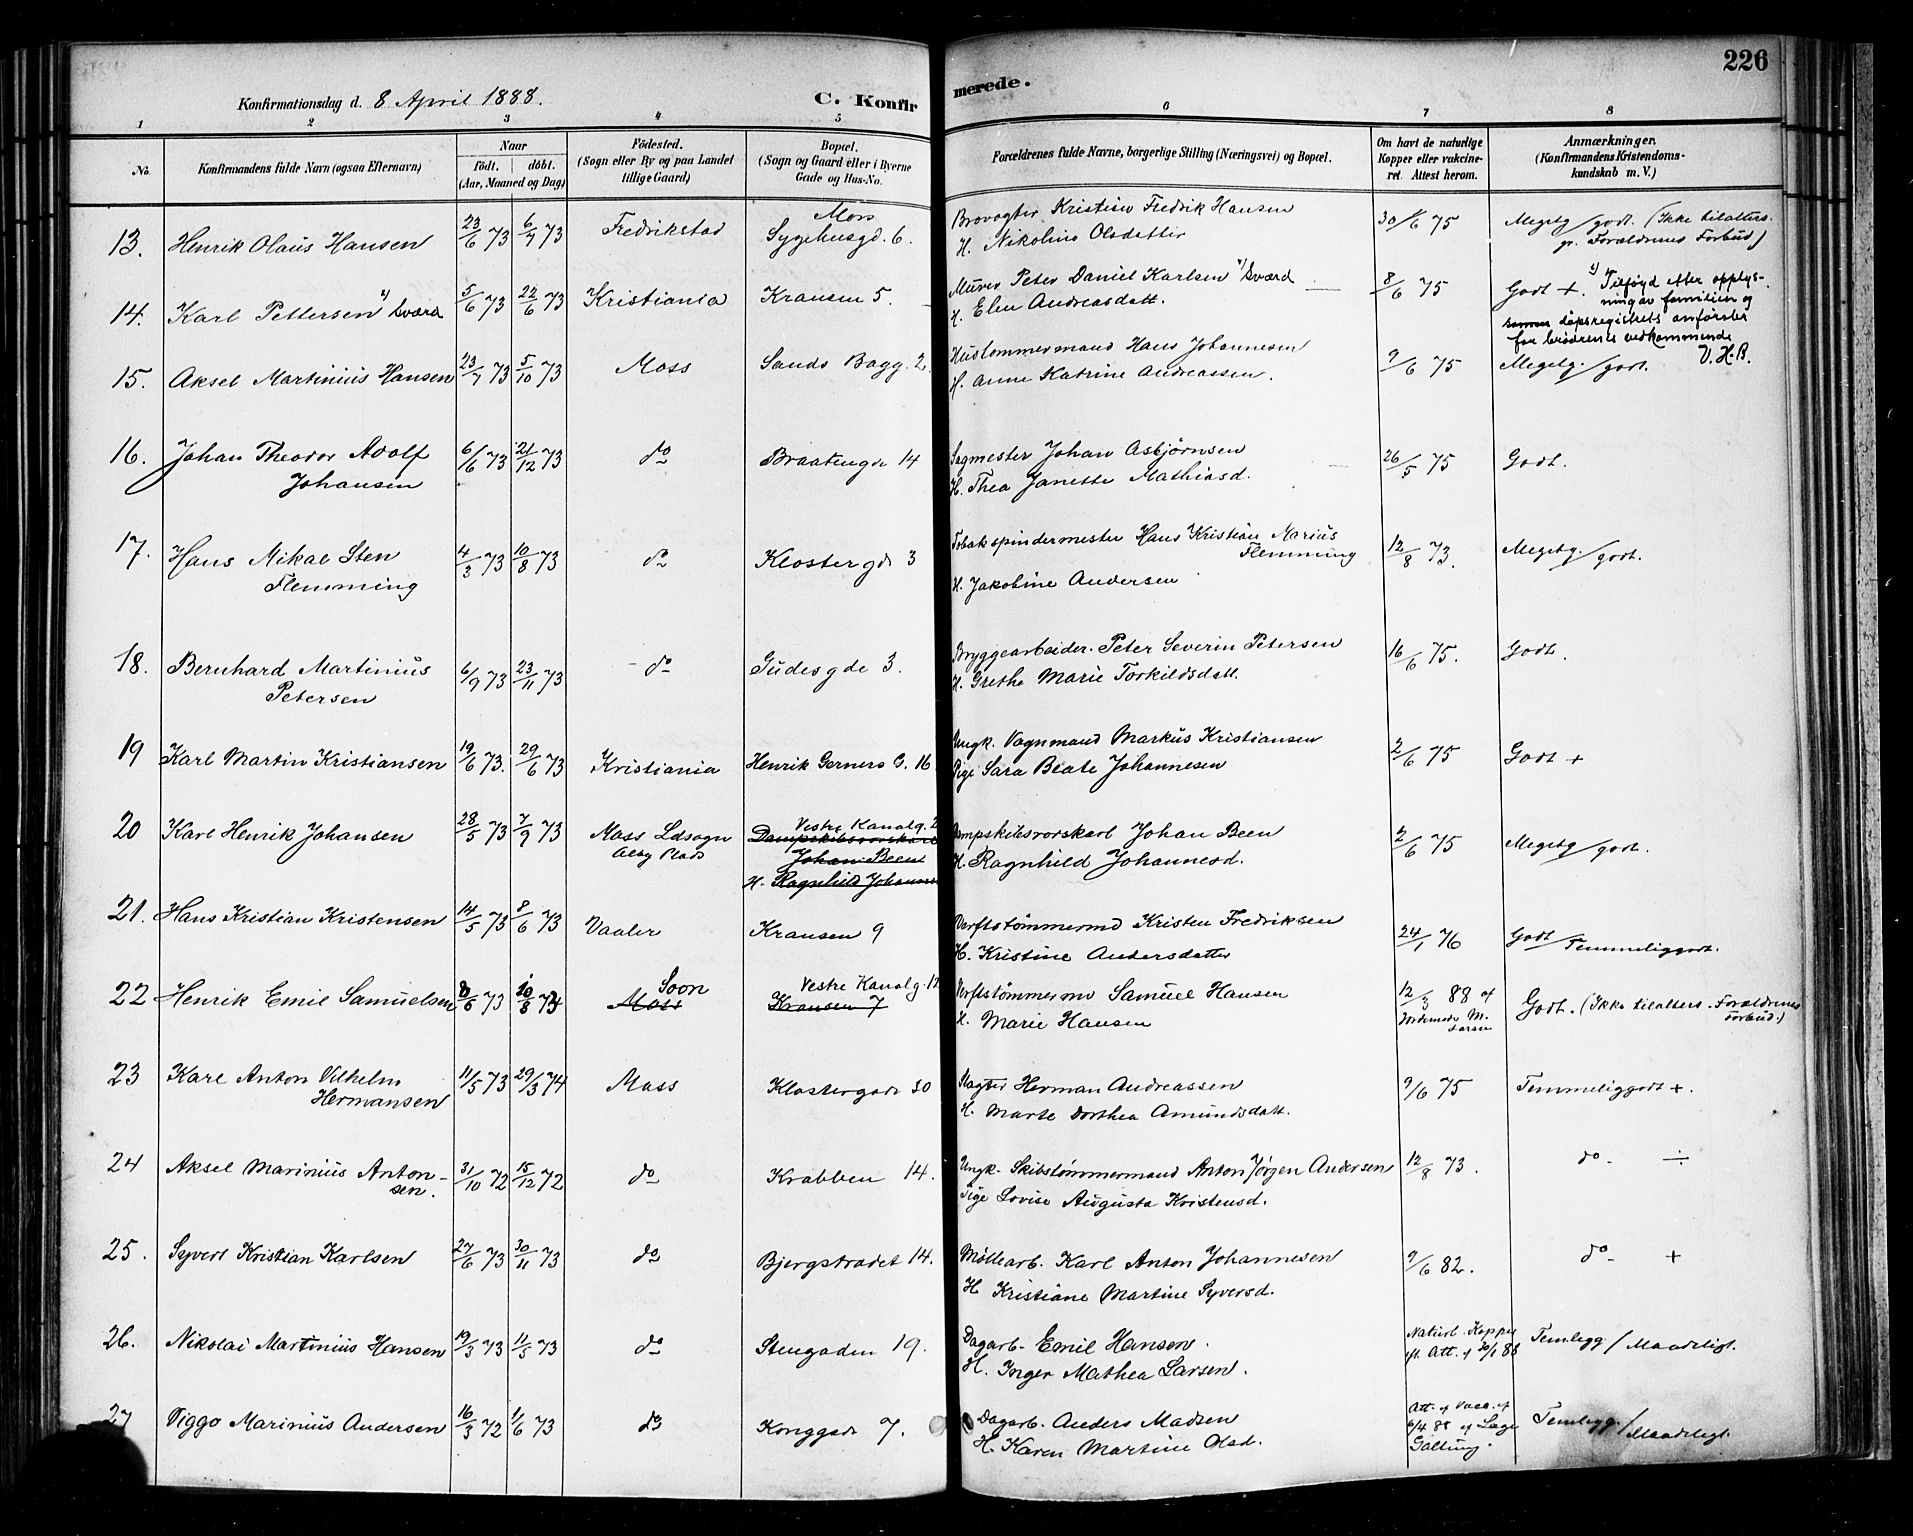 226
Konfirmationsdag d. 8 April 1888.
C. Konfirmerede.
1 2 3 4 5 6 7 8
No.
Konfirmandens fulde Navn (ogsaa Efternavn)
Naar
födt. döbt.
(Aar, Maaned og Dag)
Födested.
(Sogn eller By og paa Landet
tillige Gaard)
Bopæl.
(Sogn og Gaard eller i Byerne
Gade og Hus-No.
Forældrenes fulde Navne, borgerlige Stilling (Næringsvei) og Bopæl.
Om havt de naturlige
Kopper eller vakcine-
ret. Attest herom.
Anmærkninger.
(Konfirmandens Kristendoms-
kundskab m. V.)
13. Henrik Olaus Hansen 23/6 73 6/7 73 Fredrikstad Moss
Sygehusgd. 6.
Brovogter Kristian Fredrik Hansen
H. Nikoline Olsdatter
30/6 75 Megetg/godt. (Ikke tilalters.
gr. Forældrenes Forbud)
14. Karl Pettersen 1) Sværd 5/6 73 22/6 73 Kristiania Kransen 5.
Murer Peter Daniel Karlsen 1) Sværd
H. Elen Andreasdatt.
8/6 75 Godt +. 1) Tilføyd etter opplys-
ning av familien og
døpsregistrets anførsler
for brødrenes vedkommende
V. H. B.
15. Aksel Martinius Hansen 23/7 73 5/10 73 Moss Sands Bagg. 2.
Hustømmermand Hans Johannesen
H. Anne Katrine Andreassen.
9/6 75 Megetg./godt.
16. Johan Theodor Adolf
Johansen 6/6 73 21/12 73 do Braatengde 14
Sagmester Johan Asbjørnsen
H. Thea Janette Mathiasd.
26/5 75 Godt.
17. Hans Mikal Sten
Flemming 4/3 73 10/8 73 do Klostergde 3
Tobakspindermester Hans Kristian Marius
Flemming
H. Jakobine Andersen
12/8 73. Megetg./godt.
18. Bernhard Martinius
Petersen 6/9 73 23/11 73 do Gudesgde 3.
Bryggearbeider. Peter Severin Petersen
H. Grethe Marie Torkildsdatt.
16/6 75. Godt.
19 Karl Martin Kristiansen 19/6 73. 29/6 73 Kristiania Henrik Gerners G. 16
Ungk. Vognmand Markus Kristiansen
Pige Sara Beate Johannesen
2/6 75 Godt +
20 Karl Henrik Johansen 28/5 73 7/9 73 Moss Ldsogn
Alby Plads
Vestre Kanalg. 2
Dampskibsvorskarl
Johan Been
H. Ragnhild Johannes
Dampskibsvorskarl Johan Been
H. Ragnhild Johannesd.
2/6 75 Megetg/godt.
21. Hans Kristian Kristensen 14/5 73 8/6 73 Vaaler Kransen 9
Verftstømmermd Kristen Fredriksen
H. Kristine Andersdatter
24/1 76 Godt/Temmeliggodt.
22 Henrik Emil Samuelsen 8/6 73 10/8 73 Soon
Moss
Vestre Kanalg. 12
Kransen 7
Verftstømmermd Samuel Hansen
H. Marie Hansen
12/3 88 af
Jordemoder M.
Larsen
Godt. (Ikke tilalters. Forældrenes
Forbud.)
23 Karl Anton Vilhelm
Hermansen 11/5 73 29/3 74 Moss Klostergade 30
Vagter Herman Andreassen
H. Marte Dorthea Amundsdatt.
9/6 75 Temmeliggodt +.
24 Aksel Marinius Anton-
sen. 31/10 72 15/12 72 do Krabben 14.
Ungk. Skibstømmermand Anton Jørgen Andersen
Pige Lovise Augusta Kristensd.
12/8 73. do ÷
25. Syvert Kristian Karlsen 27/6 73 30/11 73 do Bjergstrædet 14.
Møllearb. Karl Anton Johannesen
H Kristiane Martine Syversd.
9/6 82. do +
26. Nikolai Martinius Hansen 19/3 73 11/5 73 do Stengaden 19.
Dagarb. Emil Hansen.
H. Inger Mathea Larsen.
Naturl. Kopper
eft. Att. af 30/1 88
Temlegg/Maadeligt.
27 Viggo Marinius Andersen 16/3 72 1/6 73 do Konggade 7.
Dagarb. Anders Madsen
H. Karen Martine Olsd.
Att. af Vacc. af
6/4 88 af Læge
Galtung.
Temlegg./Maadeligt.